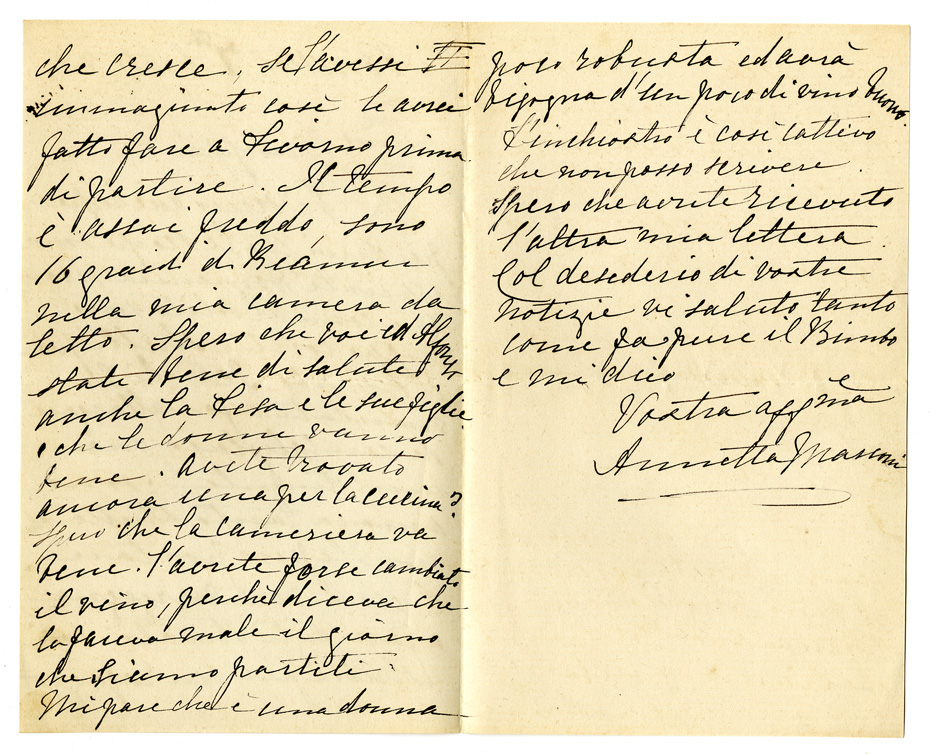 che cresce, se l'avessi
immaginato così le avrei
fatto fare a Livorno prima
di partire. Il tempo
è assai freddo, sono
16 graidi di Reámur
nella mia camera da
letto. Spero che voi ed Alfonso
state bene di salute
anche la Lisa e le sue figlie
e che le donne vanno
bene. avete trovato
ancora una per la cucina?
spero che la cameriera va
bene. l'avete forse cambiato
il vino, perchè diceva che
la faceva male il giorno
che siamo partiti.
Mi pare che è una donna
poco robusta ed avrà
bisogna d'un poco di vino buono.
L'inchiostro è così cattivo
che non posso scrivere.
Spero che avete ricevuto
l'altra mia lettera.
Col desederio di vostre
notizie vi saluto tanto
come fa pure il Bimbo
e mi dico
Vostra affma
Annetta